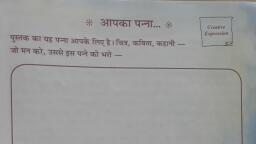 ❊ आपका पन्ना... ❊
Creative
Expression
पुस्तक का यह पन्ना आपके लिए है। चित्र, कविता, कहानी —
जो मन करे, उससे इस पन्ने को भरो —